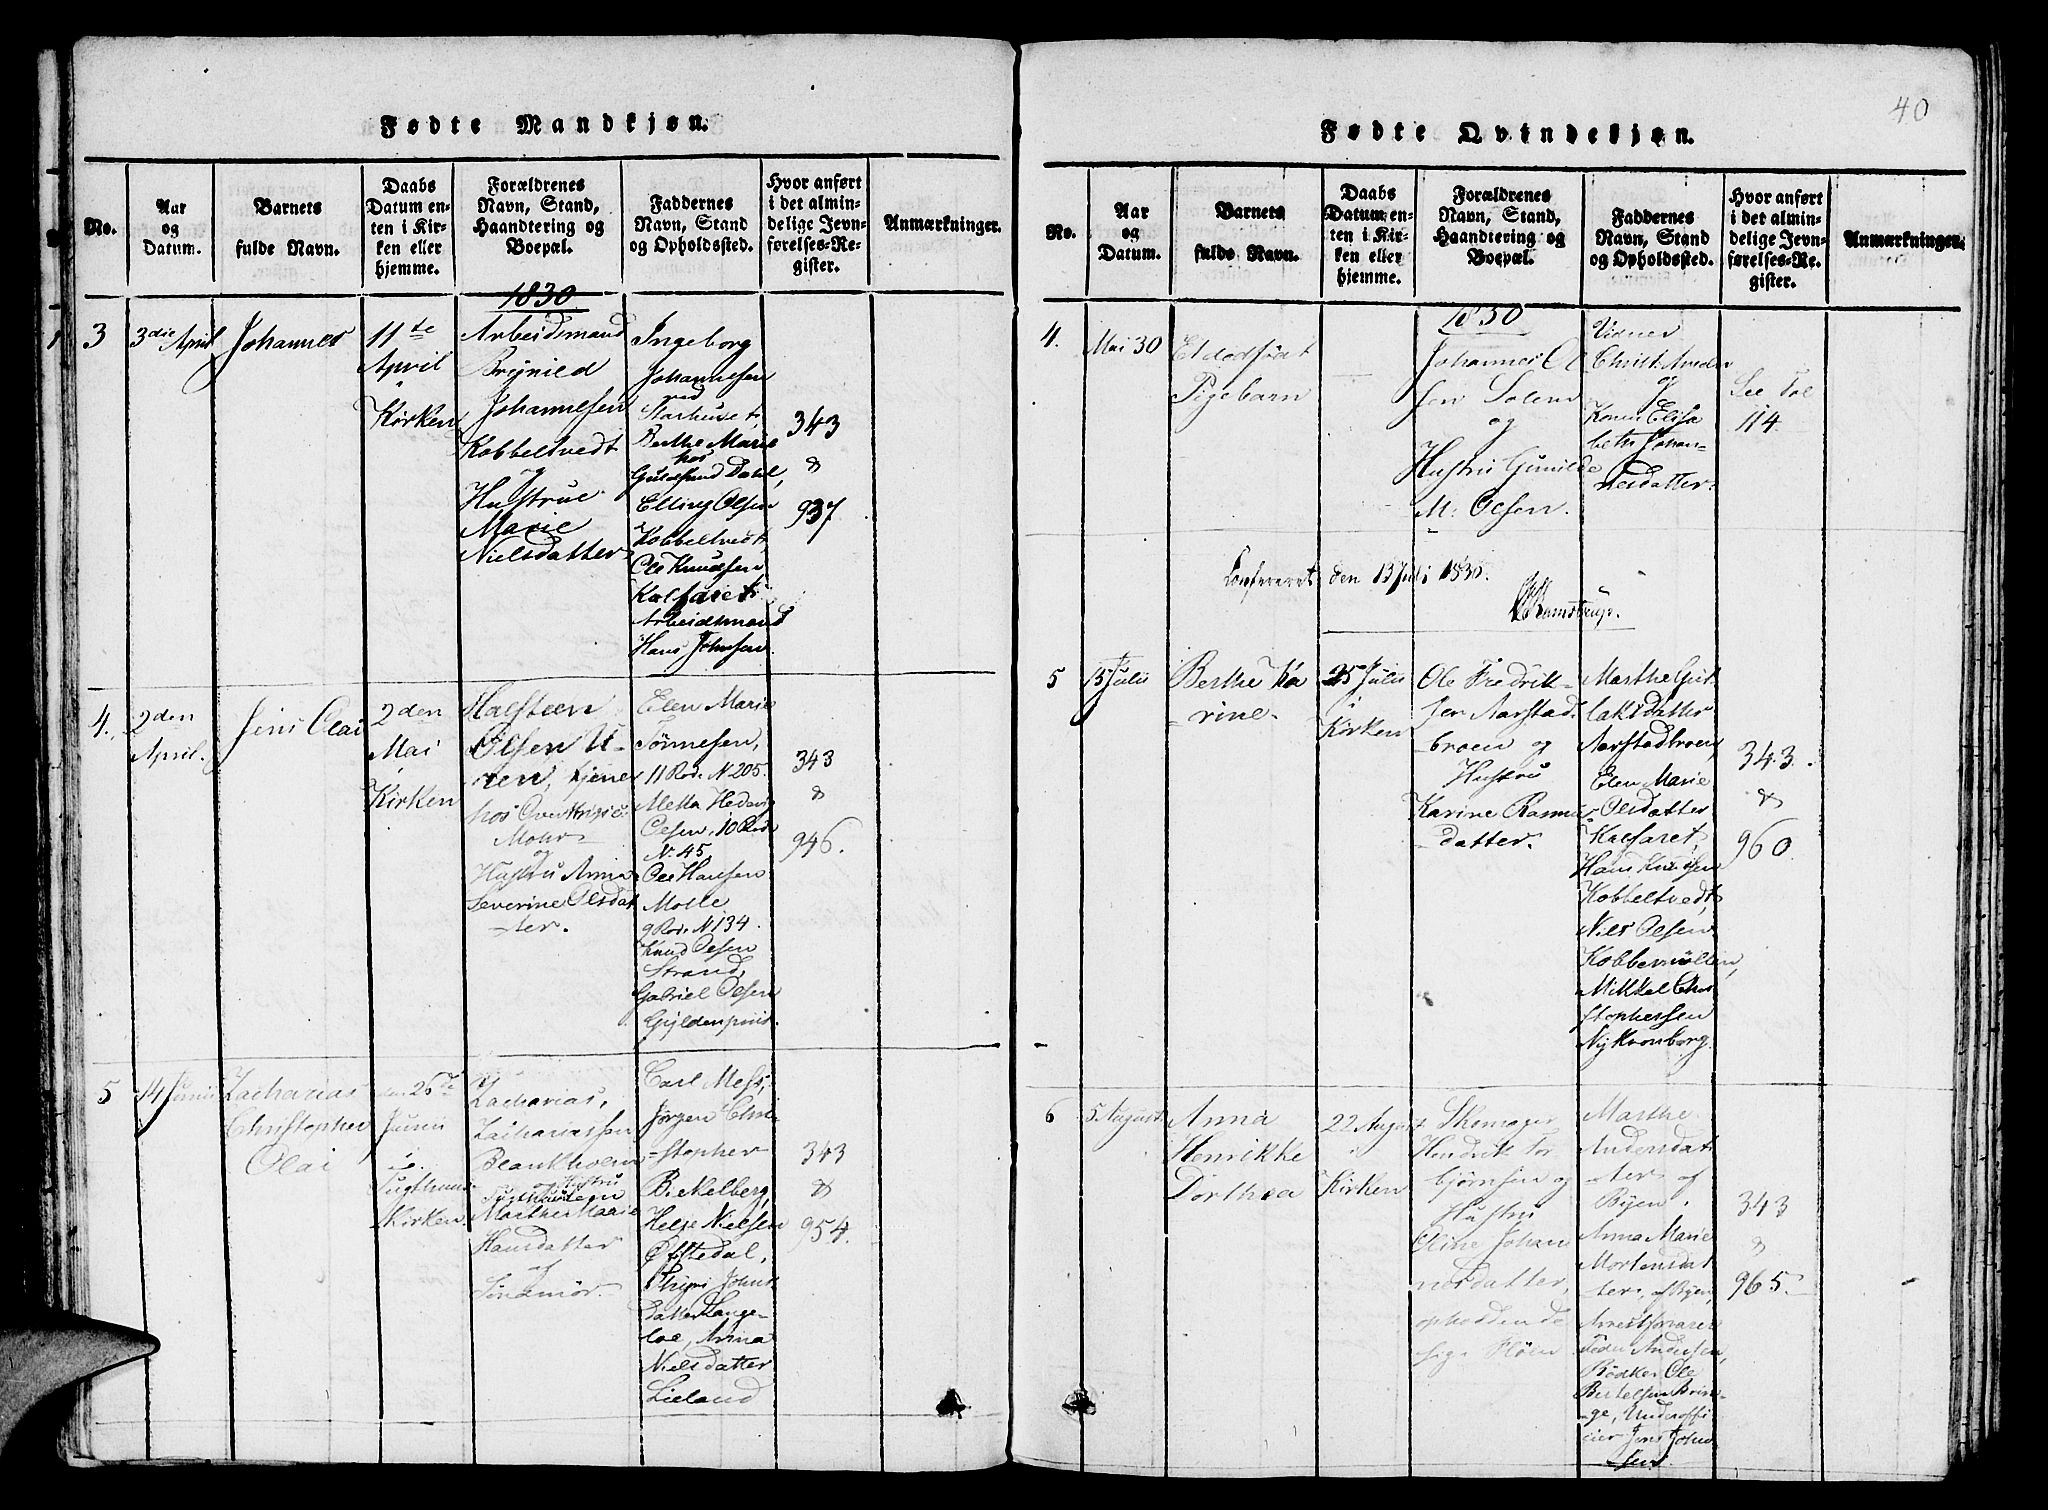 Fødte Mandkjøn.
No.
Aar
og
Datum.
Barnets
fulde Navn.
Daabs
Datum en-
ten i Kir-
ken eller
hjemme.
Forældrenes
Navn, Stand,
Haandtering og
Boepæl.
Faddernes
Navn, Stand
og Opholdssted.
Hvor anført
i det almin-
delige Jevn-
førelses-Re-
gister.
Anmærkninger.
1830
3
3die April
Johannes
11te
April
i
Kirken
Arbeidsmand
Brynild
Johannesen
Kobbeltvedt
og
Hustrue
Marie
Nielsdatter
Ingeborg
Johannesen
ved
Starhuset,
Berthe Marie
hos
Dahl,
Elling Olsen
Kobbeltvedt,
Ole Knudsen
Kalfaret,
Arbeidsmand
Hans Johnsen.
343
&
937
4.
2den
April.
Jens Olai
2den
Mai
i
Kirken
Halsteen
Olsen U-
ren, tjener
hos
Mohr
og
Hustru Anna
Severine Olsdat
ter.
Elen Marie
Tönnesen,
11 Rode N 205.
Metta Hedevig
Olsen, 10 Rode
N. 45
Ole Hansen
Molle
9 Rode N 134.
Knud Olsen
Strand,
Gabriel Olsen
Gyldenpriis.
343
&
946.
5
14 Junii
Zacharias
Christopher
Olai
den 26de
Junii
i
Tugthuus-
Kirken.
Zacharias,
Zachariassen
Blankholm
og Hustru
Marthe Marie
Hansdatter
af
Søndmör.
Carl
Jørgen Chri-
stopher
Bickelberg,
Helje Nielsen
Offtedal,
Johns
datter Lange-
loe, Anna
Nielsdatter
Lieland
343
&
954.
40
Fødte Qvindekjøn.
No.
Aar
og
Datum.
Barnets
fulde Navn.
Daabs
Datum en-
ten i Kir-
ken eller
hjemme.
Forældrenes
Navn, Stand,
Haandtering og
Boepæl.
Faddernes
Navn, Stand
og Opholdssted.
Hvor anført
i det almin-
delige Jevn-
førelses-Re-
gister.
Anmærkninger.
1830
4.
Mai 30
Et dødfødt
Pigebarn
Johannes Ol
sen Solem
og
Hustru Gunilde
M. Olsen.
Vidner
Christ. Ander
og
Konen Elisa
beth Johan-
nesdatter.
See Fol
114.
Confereret den 13 Juli 1830.
Ramstrup.
5
15 Julii
Berthe Ka
rine.
25 Julii
i
Kirken
Ole Fredrik-
sen Aarstad
broen og
Hustru
Karine Rasmus
datter.
Marthe Gut
laksdatter
Aarstadbroen,
Elen Marie
Olsdatter
Kalfaret,
Hans Knudsen
Kobbeltvedt,
Niels Olsen
Kobbemöllen,
Mikkel Chri
stophersen
Nykronborg.
343.
&
960
6
5 August
Anna
Henrikke
Dorthea
22 August
i
Kirken
Skomager
Hendrik Tor
bjørnsen og
Hustru
Oline Johan
nesdatter,
opholdende
sig i Fløen
Marthe
Andersdat
ter af
Byen,
Anna Marie
Mortensdat
ter, af Byen,
Arrestforvarer
Peder Andersen,
Bødker Ole
Bertelsen Brin-
ge, Underoffi
cier Jens John
sen
343
&
965.